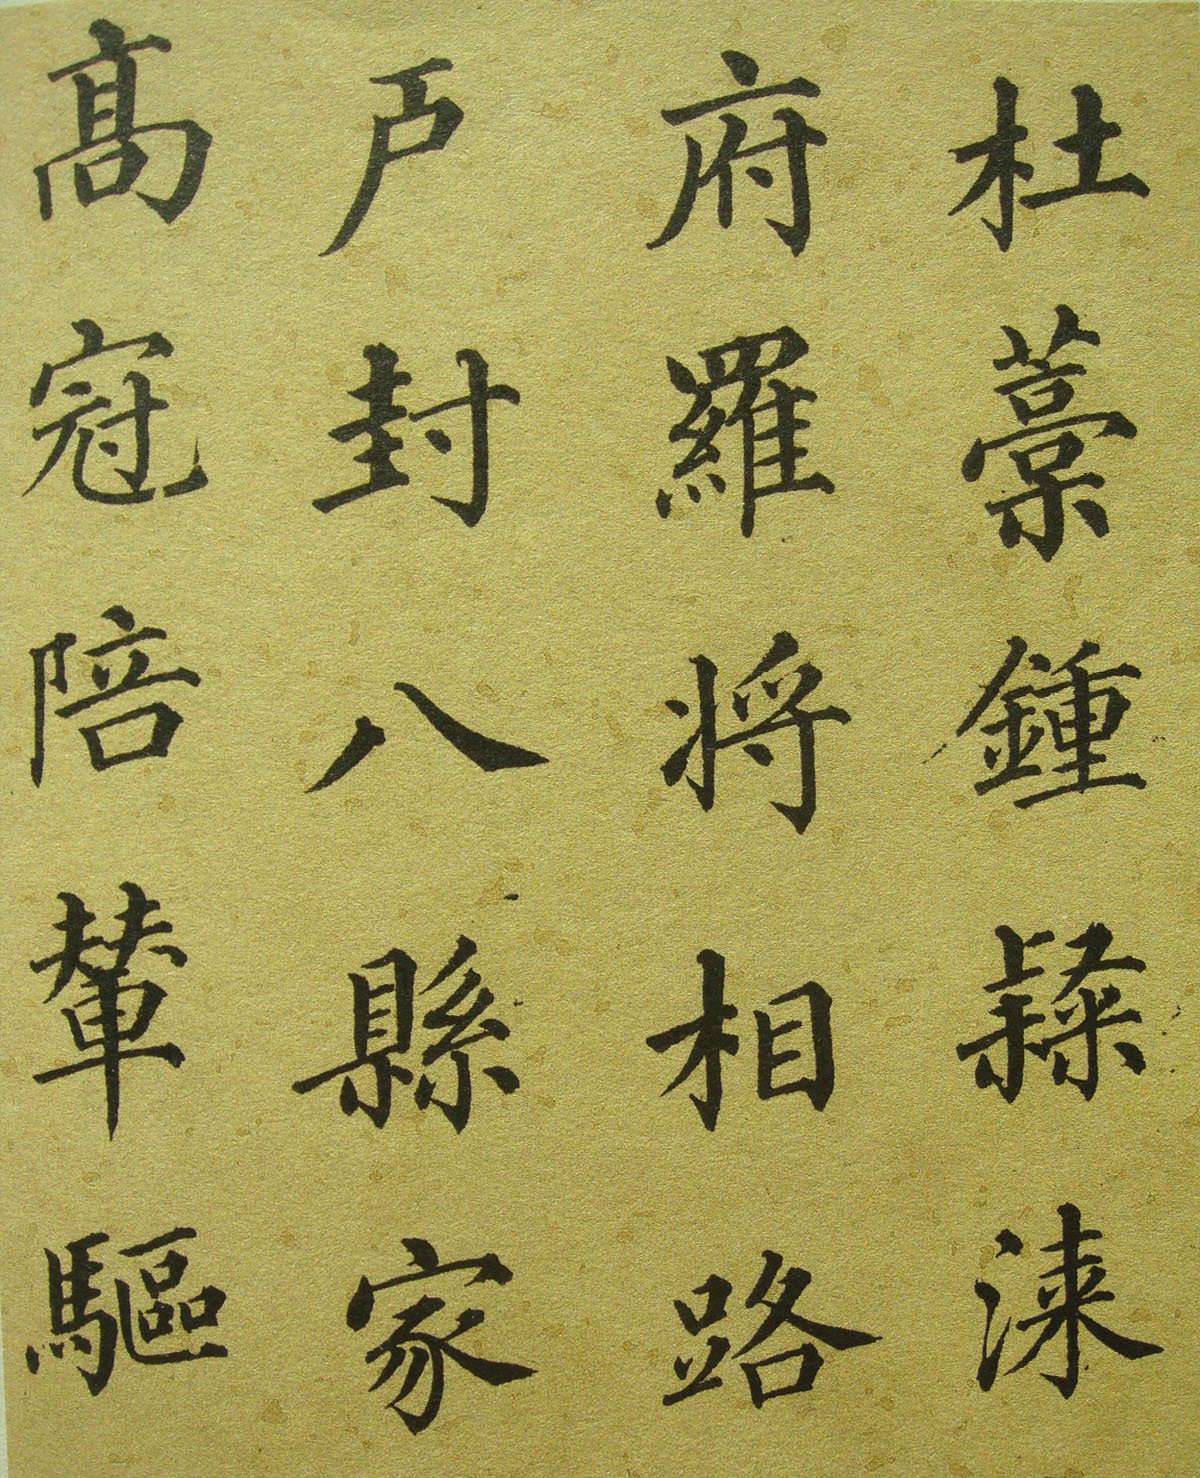 杜藁鍾隸涑
府羅將相路
戶封八縣家
高冠陪輦驅